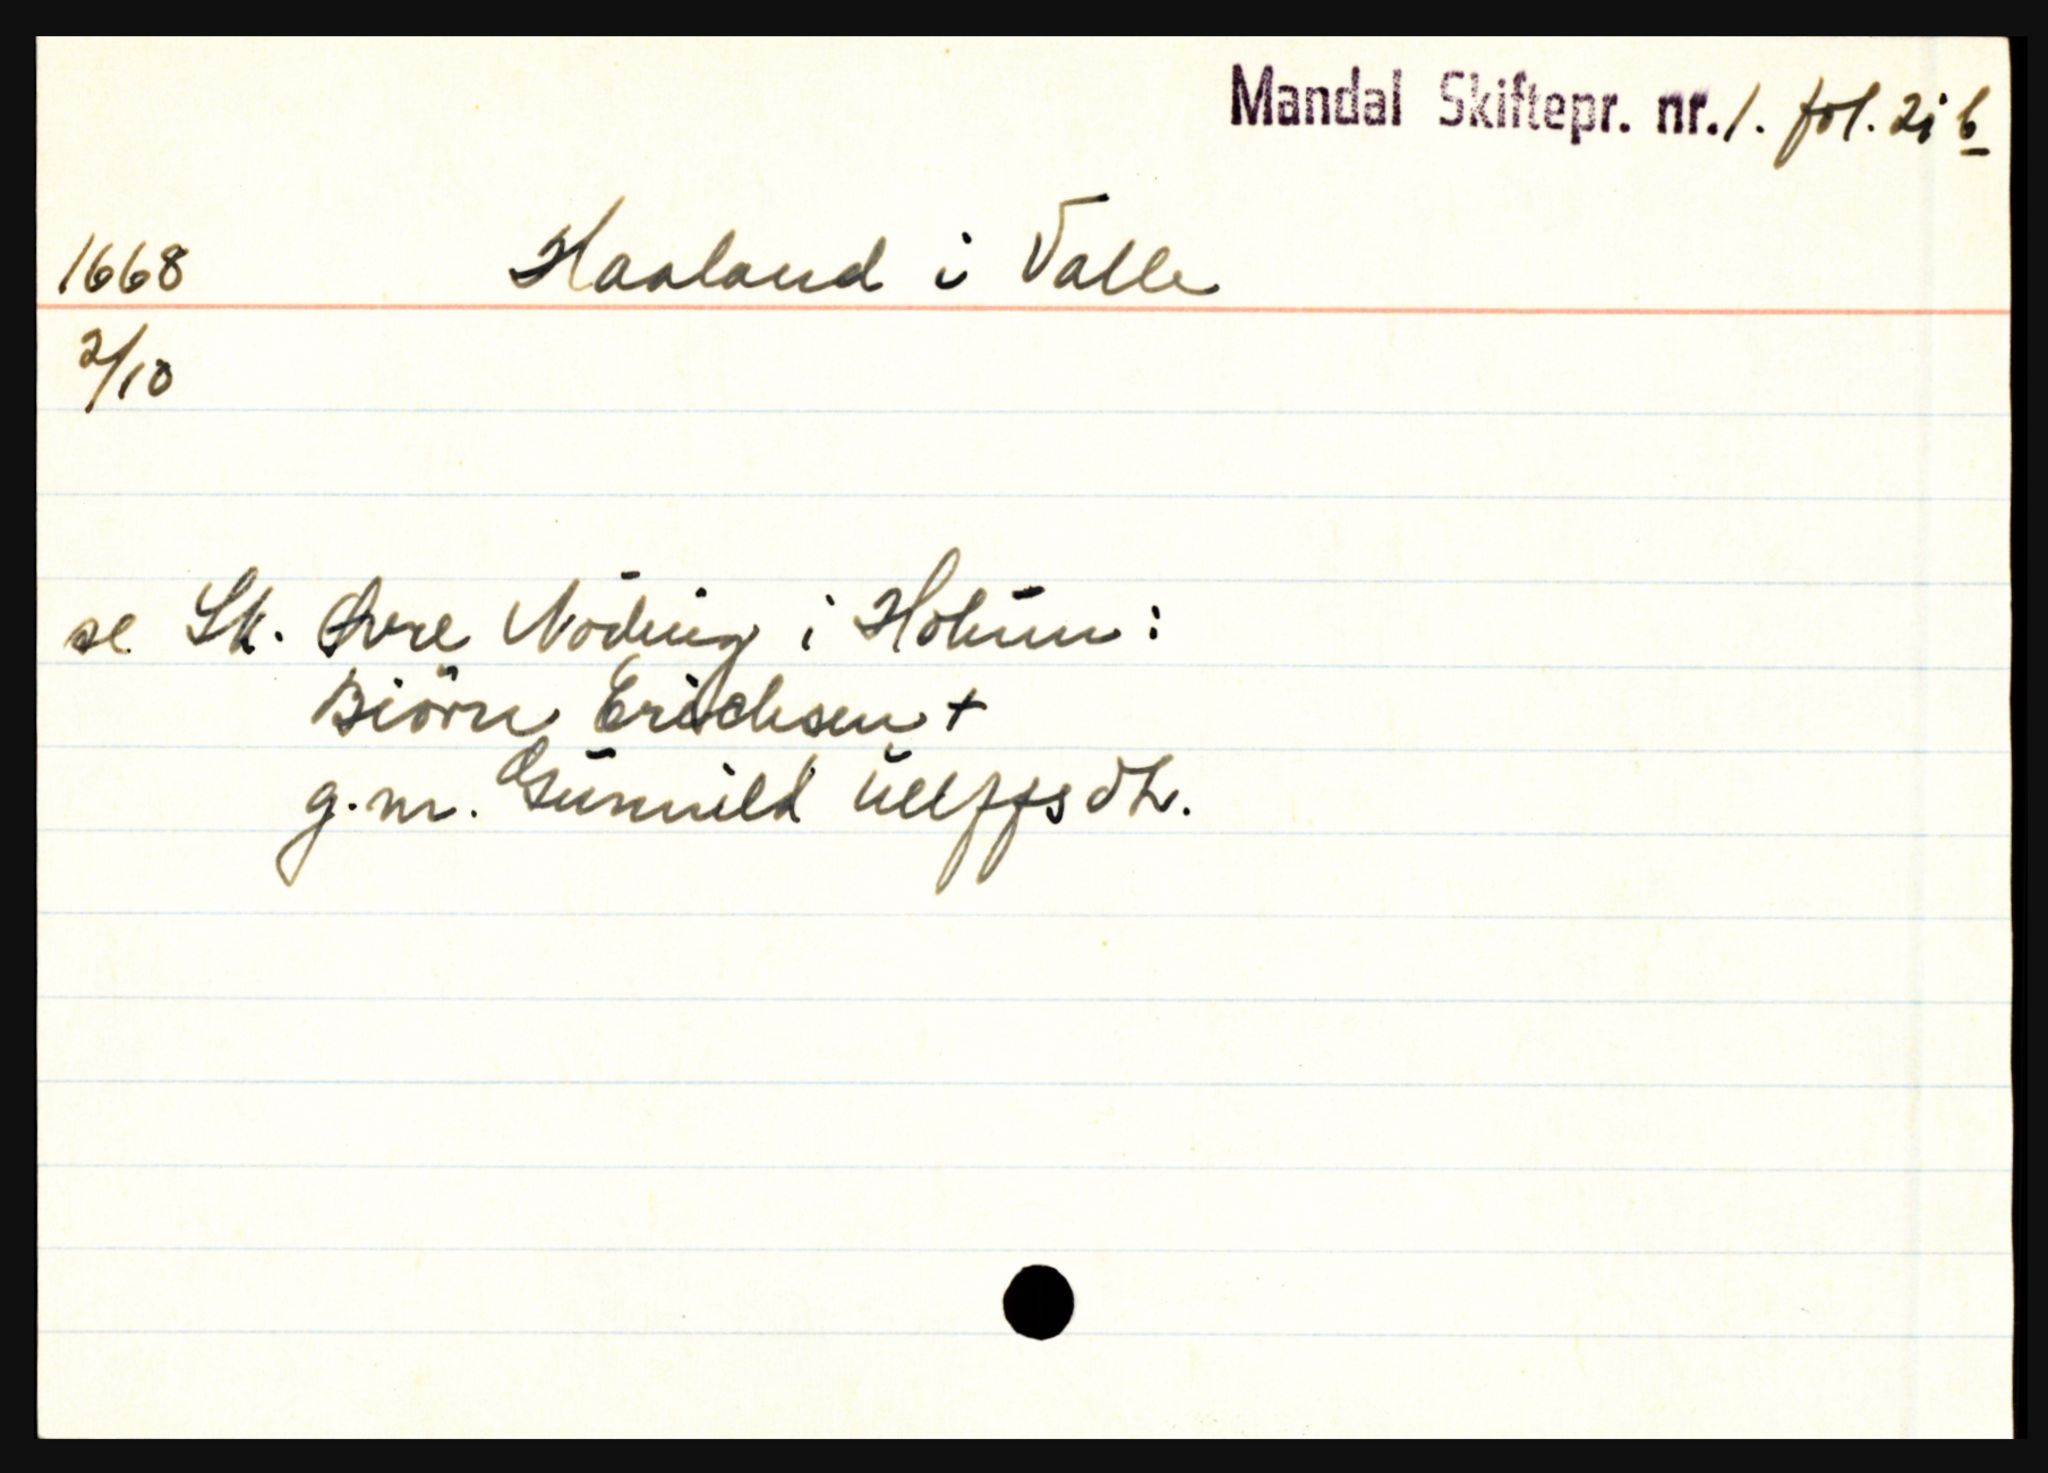 Mandal Skiftepr. nr. 1. fol. 21 b
1668 Haaland i Valle
2/10
se Sk. Øvre Nöding i Holum:
Biörn Erichsen +
g.m. Gunnild Ullffsdtr.